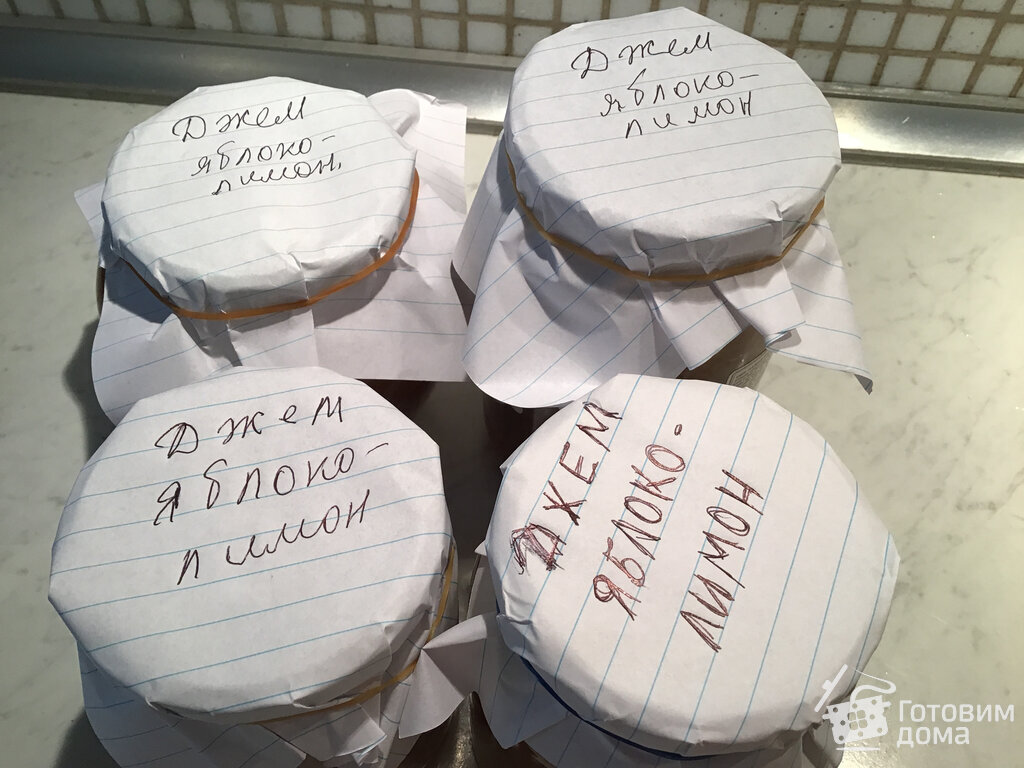 Джем
яблоко-
лимон.
Джем
яблоко-
лимон
Джем
яблоко-
лимон
ДЖЕМ
ЯБЛОКО-
ЛИМОН
Готовим
дома